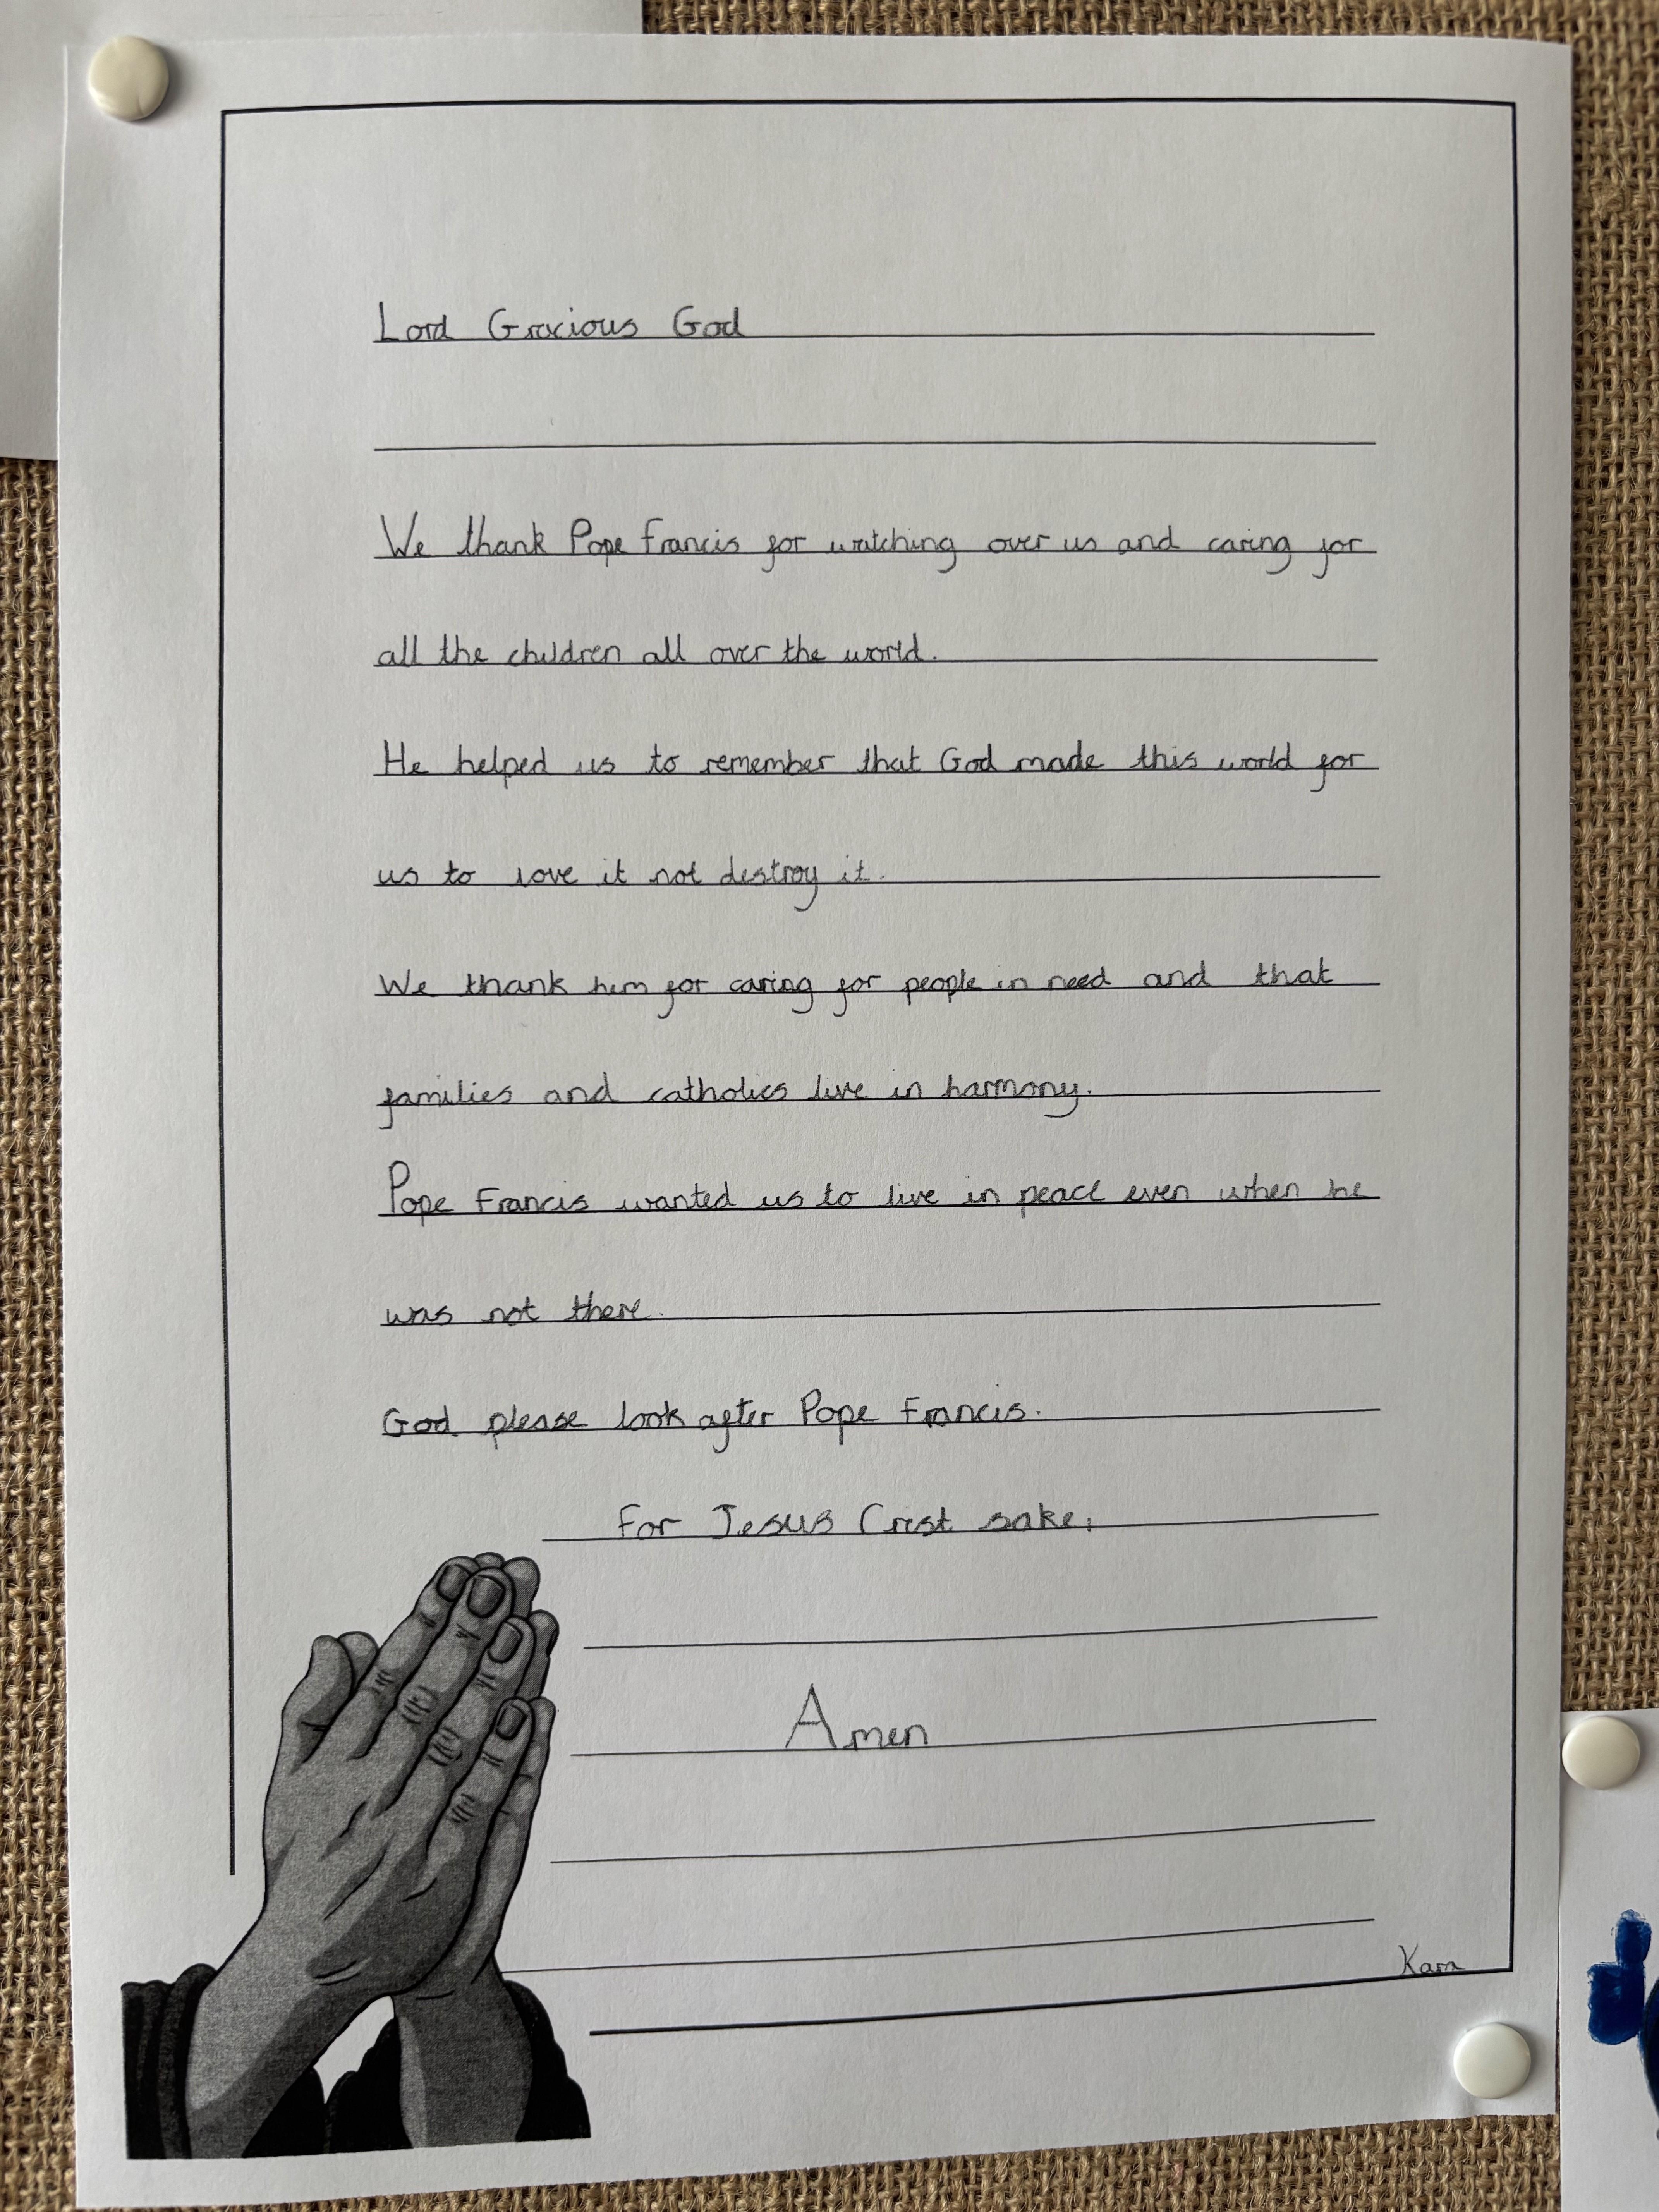 Lord Gracious God
We thank Pope Francis for watching over us and caring for
all the children all over the world.
He helped us to remember that God made this world for
us to love it not destroy it.
We thank him for caring for people in need and that
families and catholics live in harmony.
Pope Francis wanted us to live in peace even when he
was not there.
God please look after Pope Francis.
For Jesus Crist sake:
Amen
Kara